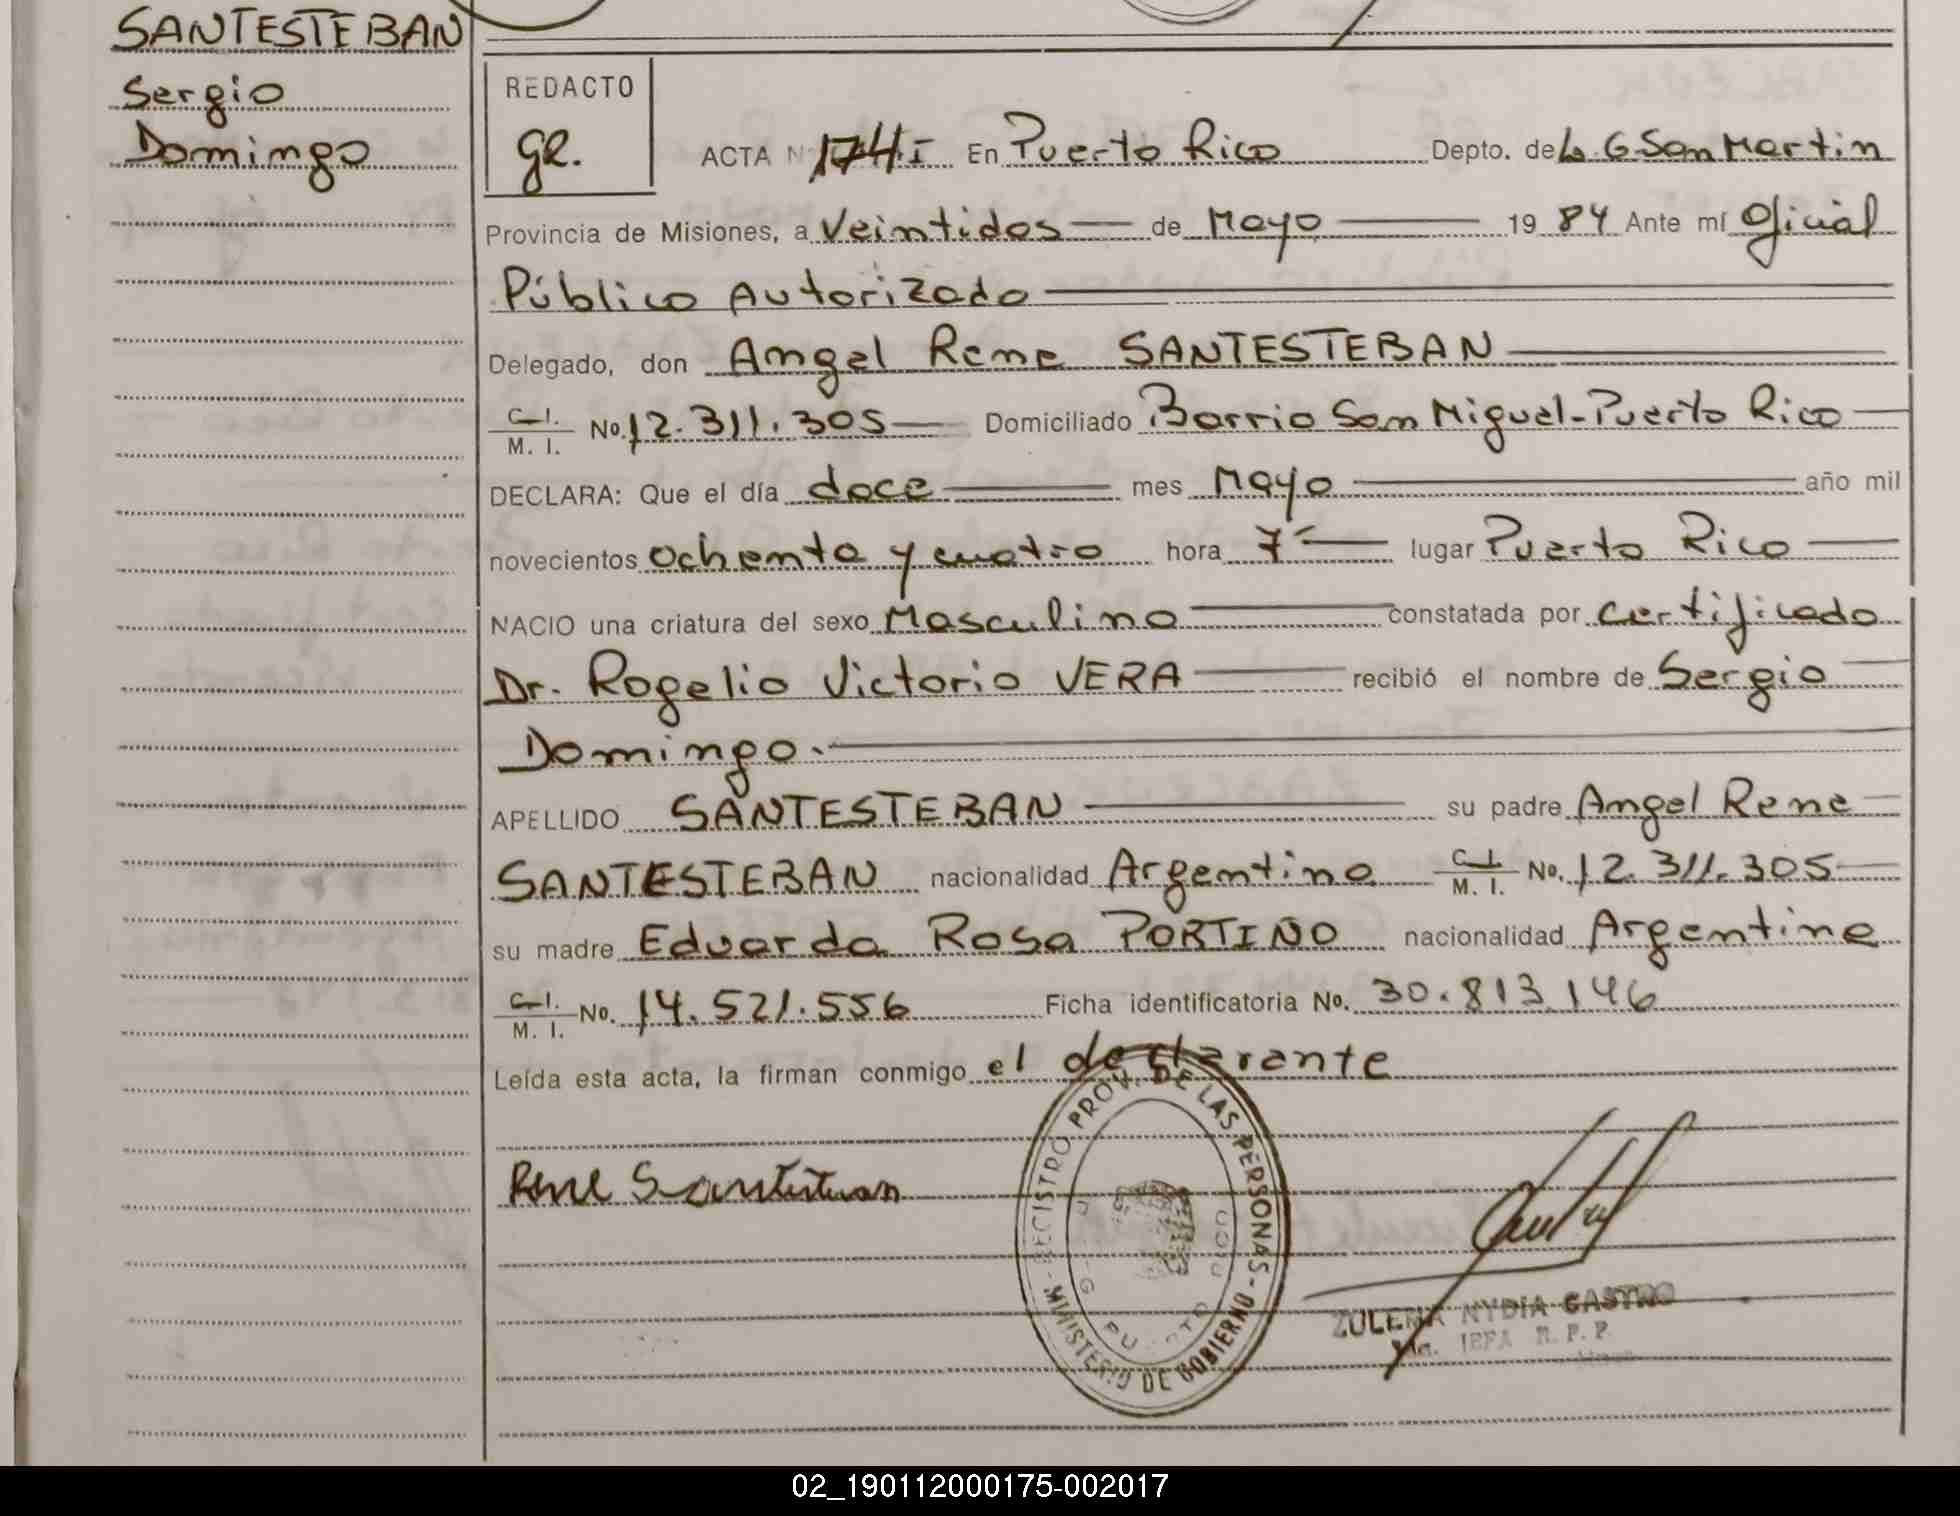 SANTESTEBAN
Sergio
Domingo
REDACTO
ge.
ACTA Nº 174 I En Puerto Rico Depto. de L. G San Martin
Provincia de Misiones, a Veintidos de Mayo 19 84 Ante mí Oficial
Público Autorizado
Delegado, don Angel Rene SANTESTEBAN
C.I. M. I. No. 12.311.305 Domiciliado Barrio San Miguel-Puerto Rico
DECLARA: Que el día doce mes Mayo año mil
novecientos ochenta y cuatro hora 7 lugar Puerto Rico
NACIO una criatura del sexo Masculino constatada por certificado
Dr. Rogelio Victorio VERA recibió el nombre de Sergio
Domingo.
APELLIDO SANTESTEBAN su padre Angel Rene
SANTESTEBAN nacionalidad Argentino C.I. M. I. No. 12.311.305
su madre Eduarda Rosa PORTIÑO nacionalidad Argentina
C.I. M. I. No. 14.521.556 Ficha identificatoria No. 30.813.146
Leída esta acta, la firman conmigo el declarante
Rene Santesteban
REGISTRO PROV. DE LAS PERSONAS - MINISTERIO DE GOBIERNO -
ZULEMA NYDIA CASTRO
JEFA R. P. P.
02_190112000175-002017